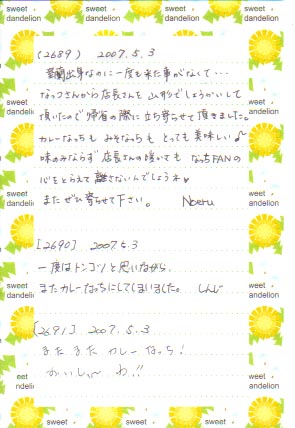 sweet dandelion
(2689) 2007.5.3
室蘭出身なのに一度も来た事がなくて…
なっつさんから店長さんを 山形でしょうかいして
頂いたので帰省の際に立ち寄らせて頂きました。
カレーなっちも みそなちも とっても美味しい♪
味のみならず 店長さんの なっちFANの
心をとらえて 離さないんでしょうネ
また ぜひ 寄らせて下さい。 Noeru
[2690] 2007.5.3
一度はトンコツと思いながら、
またカレーなっちにしてしまいました。 しんじ
[2691] 2007.5.3
またまた カレーなっち!
おいしい わ!!